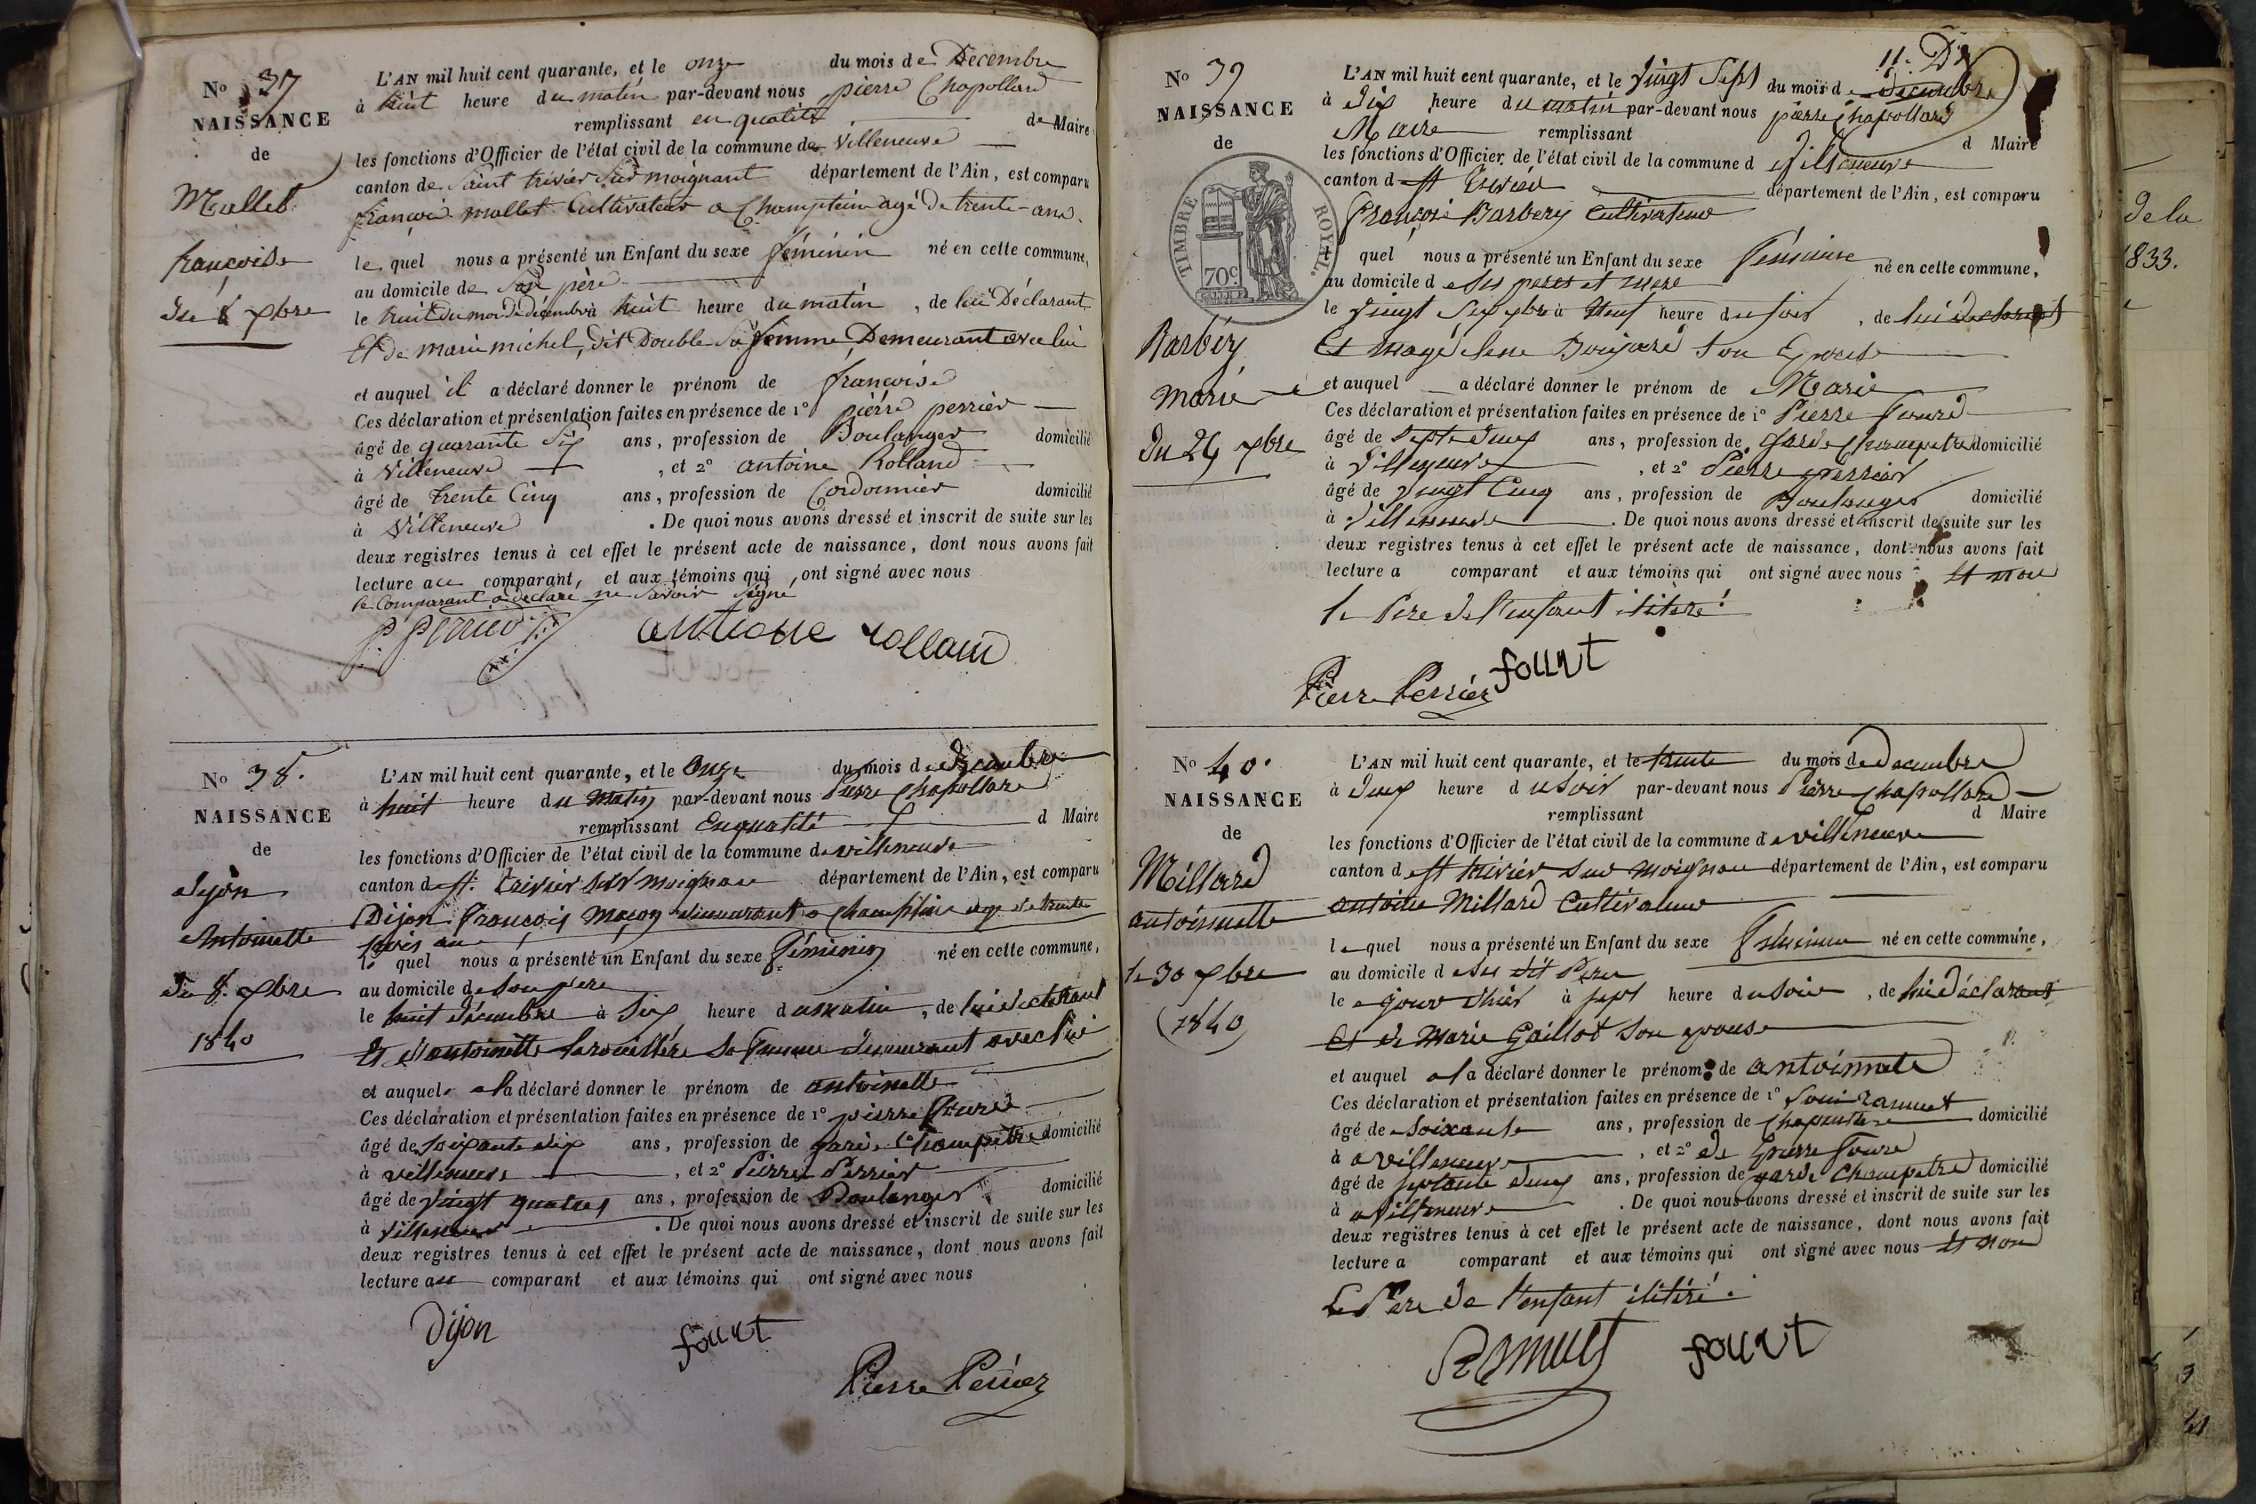 No 37
NAISSANCE
de
Mallet
françoise
du 8 xbre
L'AN mil huit cent quarante, et le onze du mois de Decembre
à huit heure du matin par-devant nous pierre Chapollard
remplissant en qualité de Maire
les fonctions d'Officier de l'état civil de la commune de Villeneuve
canton de Saint trivier Sur moignant département de l'Ain, est comparu
françois mallet Cultivateur a Champtein agé de trente ans.
le quel nous a présenté un Enfant du sexe féminin né en cette commune,
au domicile de Son père
le huit du mois de décembre à huit heure du matin, de lui Déclarant
Et de marie michel, dit Double Sa femme Demeurant avec lui
et auquel il a déclaré donner le prénom de françoise
Ces déclaration et présentation faites en présence de 1° pierre perrier
âgé de quarante Six ans, profession de Boulanger domicilié
à Villeneuve, et 2° antoine Rolland
âgé de trente Cinq ans, profession de Cordonnier domicilié
à Villeneuve. De quoi nous avons dressé et inscrit de suite sur les
deux registres tenus à cet effet le présent acte de naissance, dont nous avons fait
lecture au comparant, et aux témoins qui, ont signé avec nous
le Comparant a déclaré ne Savoir Signé
P. Perrier antione rolland
No 38.
NAISSANCE
de
dijon
Antoinette
du 8. xbre
1840
L'AN mil huit cent quarante, et le Onze du mois de Decembre
à huit heure du Matin par-devant nous Pierre Chapollard
remplissant En qualité d Maire
les fonctions d'Officier de l'état civil de la commune de villeneuve
canton de St. trivier sur moignan département de l'Ain, est comparu
Dijon François Maçon demeurant a Champtein agé de trente
trois an
le quel nous a présenté un Enfant du sexe féminin né en cette commune,
au domicile de Son pere
le huit décembre à Six heure du matin, de lui déclarant
Et d'antoinette Sa femme demeurant avec lui
et auquel a déclaré donner le prénom de antoinette
Ces déclaration et présentation faites en présence de 1° pierre fouré
âgé de Soixante dix ans, profession de garde Champetre domicilié
à villeneuve, et 2° Pierre Perrier
âgé de Vingt quatre ans, profession de Boulanger domicilié
à villeneuve. De quoi nous avons dressé et inscrit de suite sur les
deux registres tenus à cet effet le présent acte de naissance, dont nous avons fait
lecture au comparant et aux témoins qui ont signé avec nous
Dijon fouret
Pierre Perrier
No 39
NAISSANCE
de
TIMBRE ROYAL.
70c.
Barbéry
Marie
du 26 xbre
11. Dx
L'AN mil huit cent quarante, et le Vingt Sept du mois de Decembre
à Dix heure du matin par-devant nous pierre Chapollard
Maire remplissant d Maire
les fonctions d'Officier de l'état civil de la commune d Villeneuve
canton d St Trivier département de l'Ain, est comparu
François Barbery Cultivateur
quel nous a présenté un Enfant du sexe Féminine né en cette commune,
au domicile de Ses peres et mere
le Vingt Six xbre à Neuf heure du Soir, de lui déclarant
Et Son Epouse
et auquel a déclaré donner le prénom de Marie
Ces déclaration et présentation faites en présence de 1° Pierre Fouré
âgé de ans, profession de garde Champetre domicilié
à Villeneuve, et 2° Pierre perrier
âgé de Vingt Cinq ans, profession de Boulanger domicilié
à Villeneuve. De quoi nous avons dressé et inscrit de suite sur les
deux registres tenus à cet effet le présent acte de naissance, dont nous avons fait
lecture a comparant et aux témoins qui ont signé avec nous Et non
le Pere de l'enfant ilitéré
Pierre Perrier fouret
No 40.
NAISSANCE
de
Millard
antoinette
le 30 xbre
(1840)
L'AN mil huit cent quarante, et le trente du mois de Decembre
à Deux heure du Soir par-devant nous Pierre Chapollard
remplissant d Maire
les fonctions d'Officier de l'état civil de la commune de villeneuve
canton d St trivier sur moignan département de l'Ain, est comparu
antoine Millard Cultivateur
le quel nous a présenté un Enfant du sexe Féminine né en cette commune,
au domicile de Ses dit Pere
le jour d'hier à sept heure du Soir, de lui déclarant
Et de Marie Gaillot Son epouse
et auquel a déclaré donner le prénom de antoinnete
Ces déclaration et présentation faites en présence de 1°
âgé de Soixante ans, profession de Chapentier domicilié
à a villeneuve, et 2° de Pierre Fouré
âgé de septante deux ans, profession de garde Champetre domicilié
à a villeneuve. De quoi nous avons dressé et inscrit de suite sur les
deux registres tenus à cet effet le présent acte de naissance, dont nous avons fait
lecture a comparant et aux témoins qui ont signé avec nous Et non
Le Pere de l'enfant ilitéré.
fouret
de la
1833.